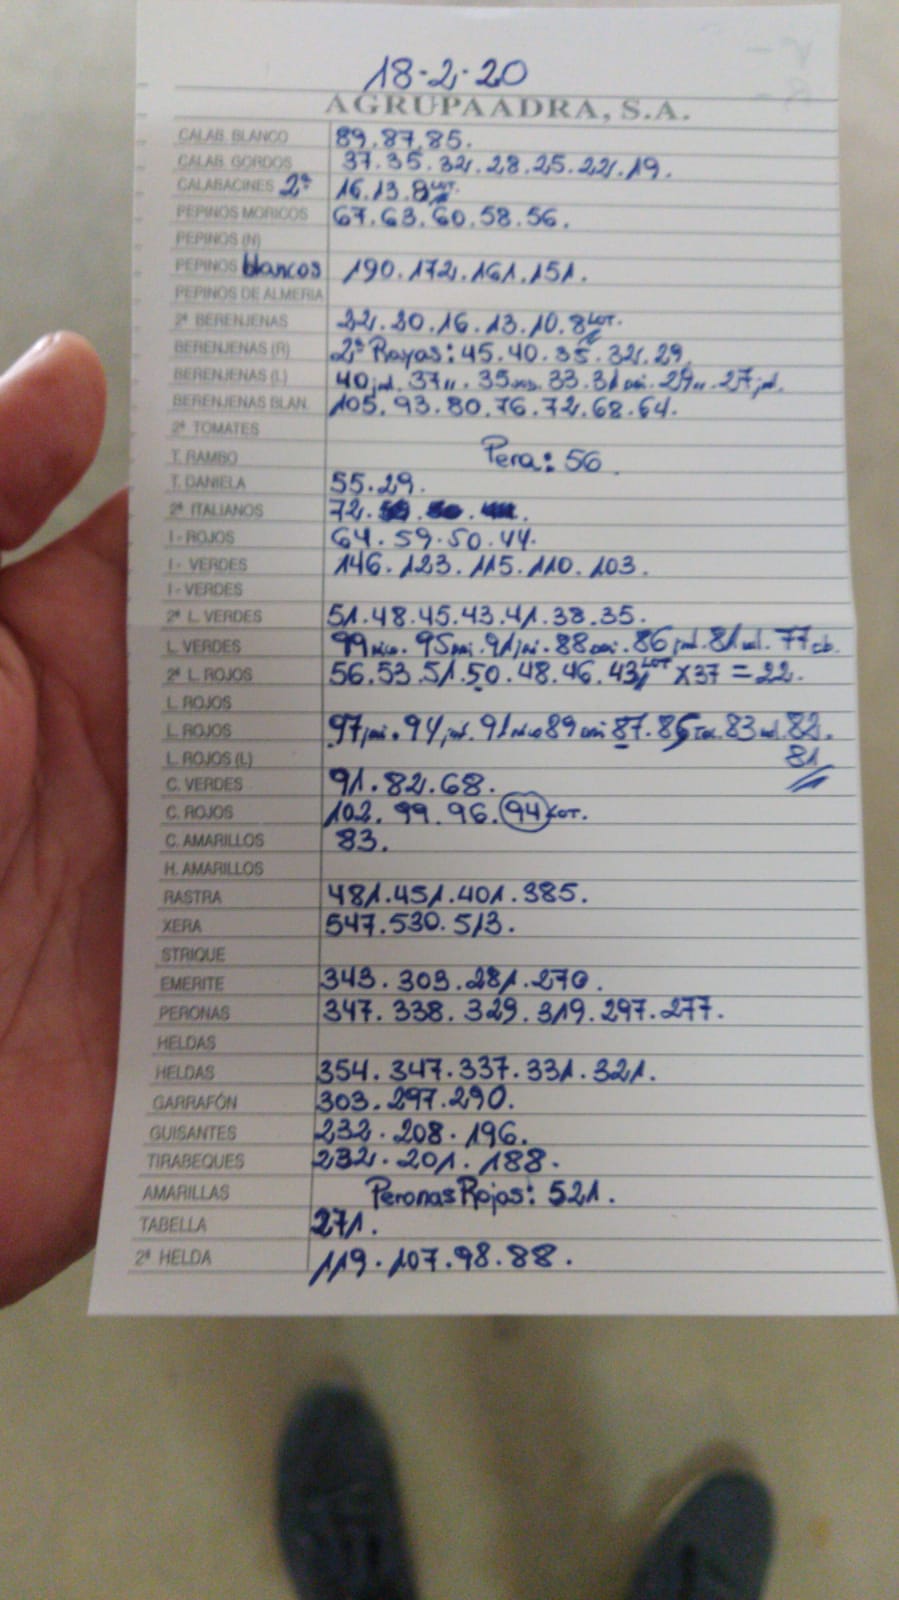 18-2-20
AGRUPAADRA, S.A.
CALAB. BLANCO 89.87.85.
CALAB. GORDOS 37.35.32.28.25.22.19.
CALABACINES 2ª 16.13.8 LOT.
PEPINOS MORICOS 67.63.60.58.56.
PEPINOS (N)
PEPINOS blancos 190.172.161.151.
PEPINOS DE ALMERIA
2ª BERENJENAS 22.20.16.13.10.8 LOT.
BERENJENAS (R) 2ª Rayas: 45.40.35.32.29.
BERENJENAS (L) 40 37 " 35 33.31 29 " 27
BERENJENAS BLAN. 105.93.80.76.72.68.64.
2ª TOMATES
T. RAMBO Pera: 56.
T. DANIELA 55.29.
2ª ITALIANOS 72.
I - ROJOS 64.59.50.44.
I - VERDES 146.123.115.110.103.
I - VERDES
2ª L. VERDES 51.48.45.43.41.38.35.
L. VERDES 99 95 91 88 86 81 77
2ª L. ROJOS 56.53.51.50.48.46.43 LOT x37 = 22.
L. ROJOS
L. ROJOS 97 94 91 89 87.86 83 82.
L. ROJOS (L) 81
C. VERDES 91.82.68.
C. ROJOS 102.99.96.94 LOT.
C. AMARILLOS 83.
H. AMARILLOS
RASTRA 481.451.401.385.
XERA 547.530.513.
STRIQUE
EMERITE 343.303.281.270.
PERONAS 347.338.329.319.297.277.
HELDAS
HELDAS 354.347.337.331.321.
GARRAFÓN 303.297.290.
GUISANTES 232.208.196.
TIRABEQUES 232.201.188.
AMARILLAS Peronas Rojas: 521.
TABELLA 271.
2ª HELDA 119.107.98.88.